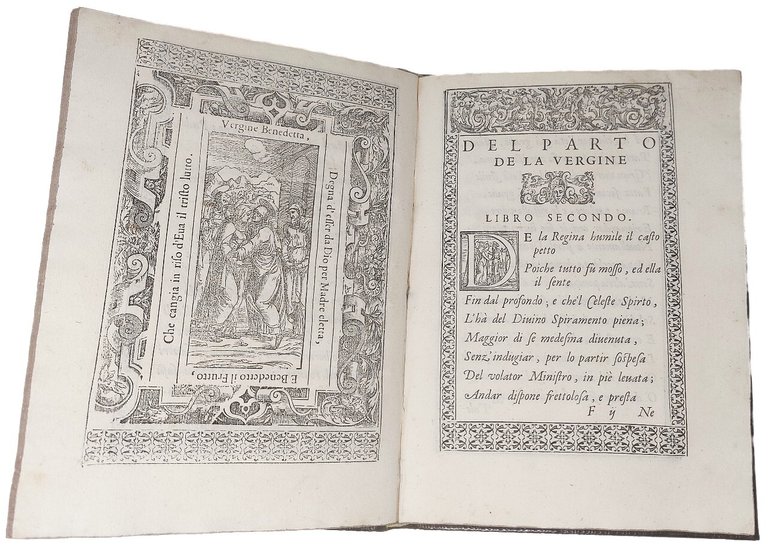 Vergine Benedetta,
Degna d'esser da Dio per Madre eletta,
E Benedetto il Frutto,
Che cangia in riso d'Eua il tristo lutto.
DEL PARTO
DE LA VERGINE
LIBRO SECONDO.
DE la Regina humile il casto
petto
Poiche tutto fù mosso, ed ella
il sente
Fin dal profondo; e che'l Celeste Spirto,
L'hà del Diuino Spiramento piena;
Maggior di se medesma diuenuta,
Senz'indugiar, per lo partir sospesa
Del volator Ministro, in piè leuata;
Andar dispone frettolosa, e presta
F y Ne